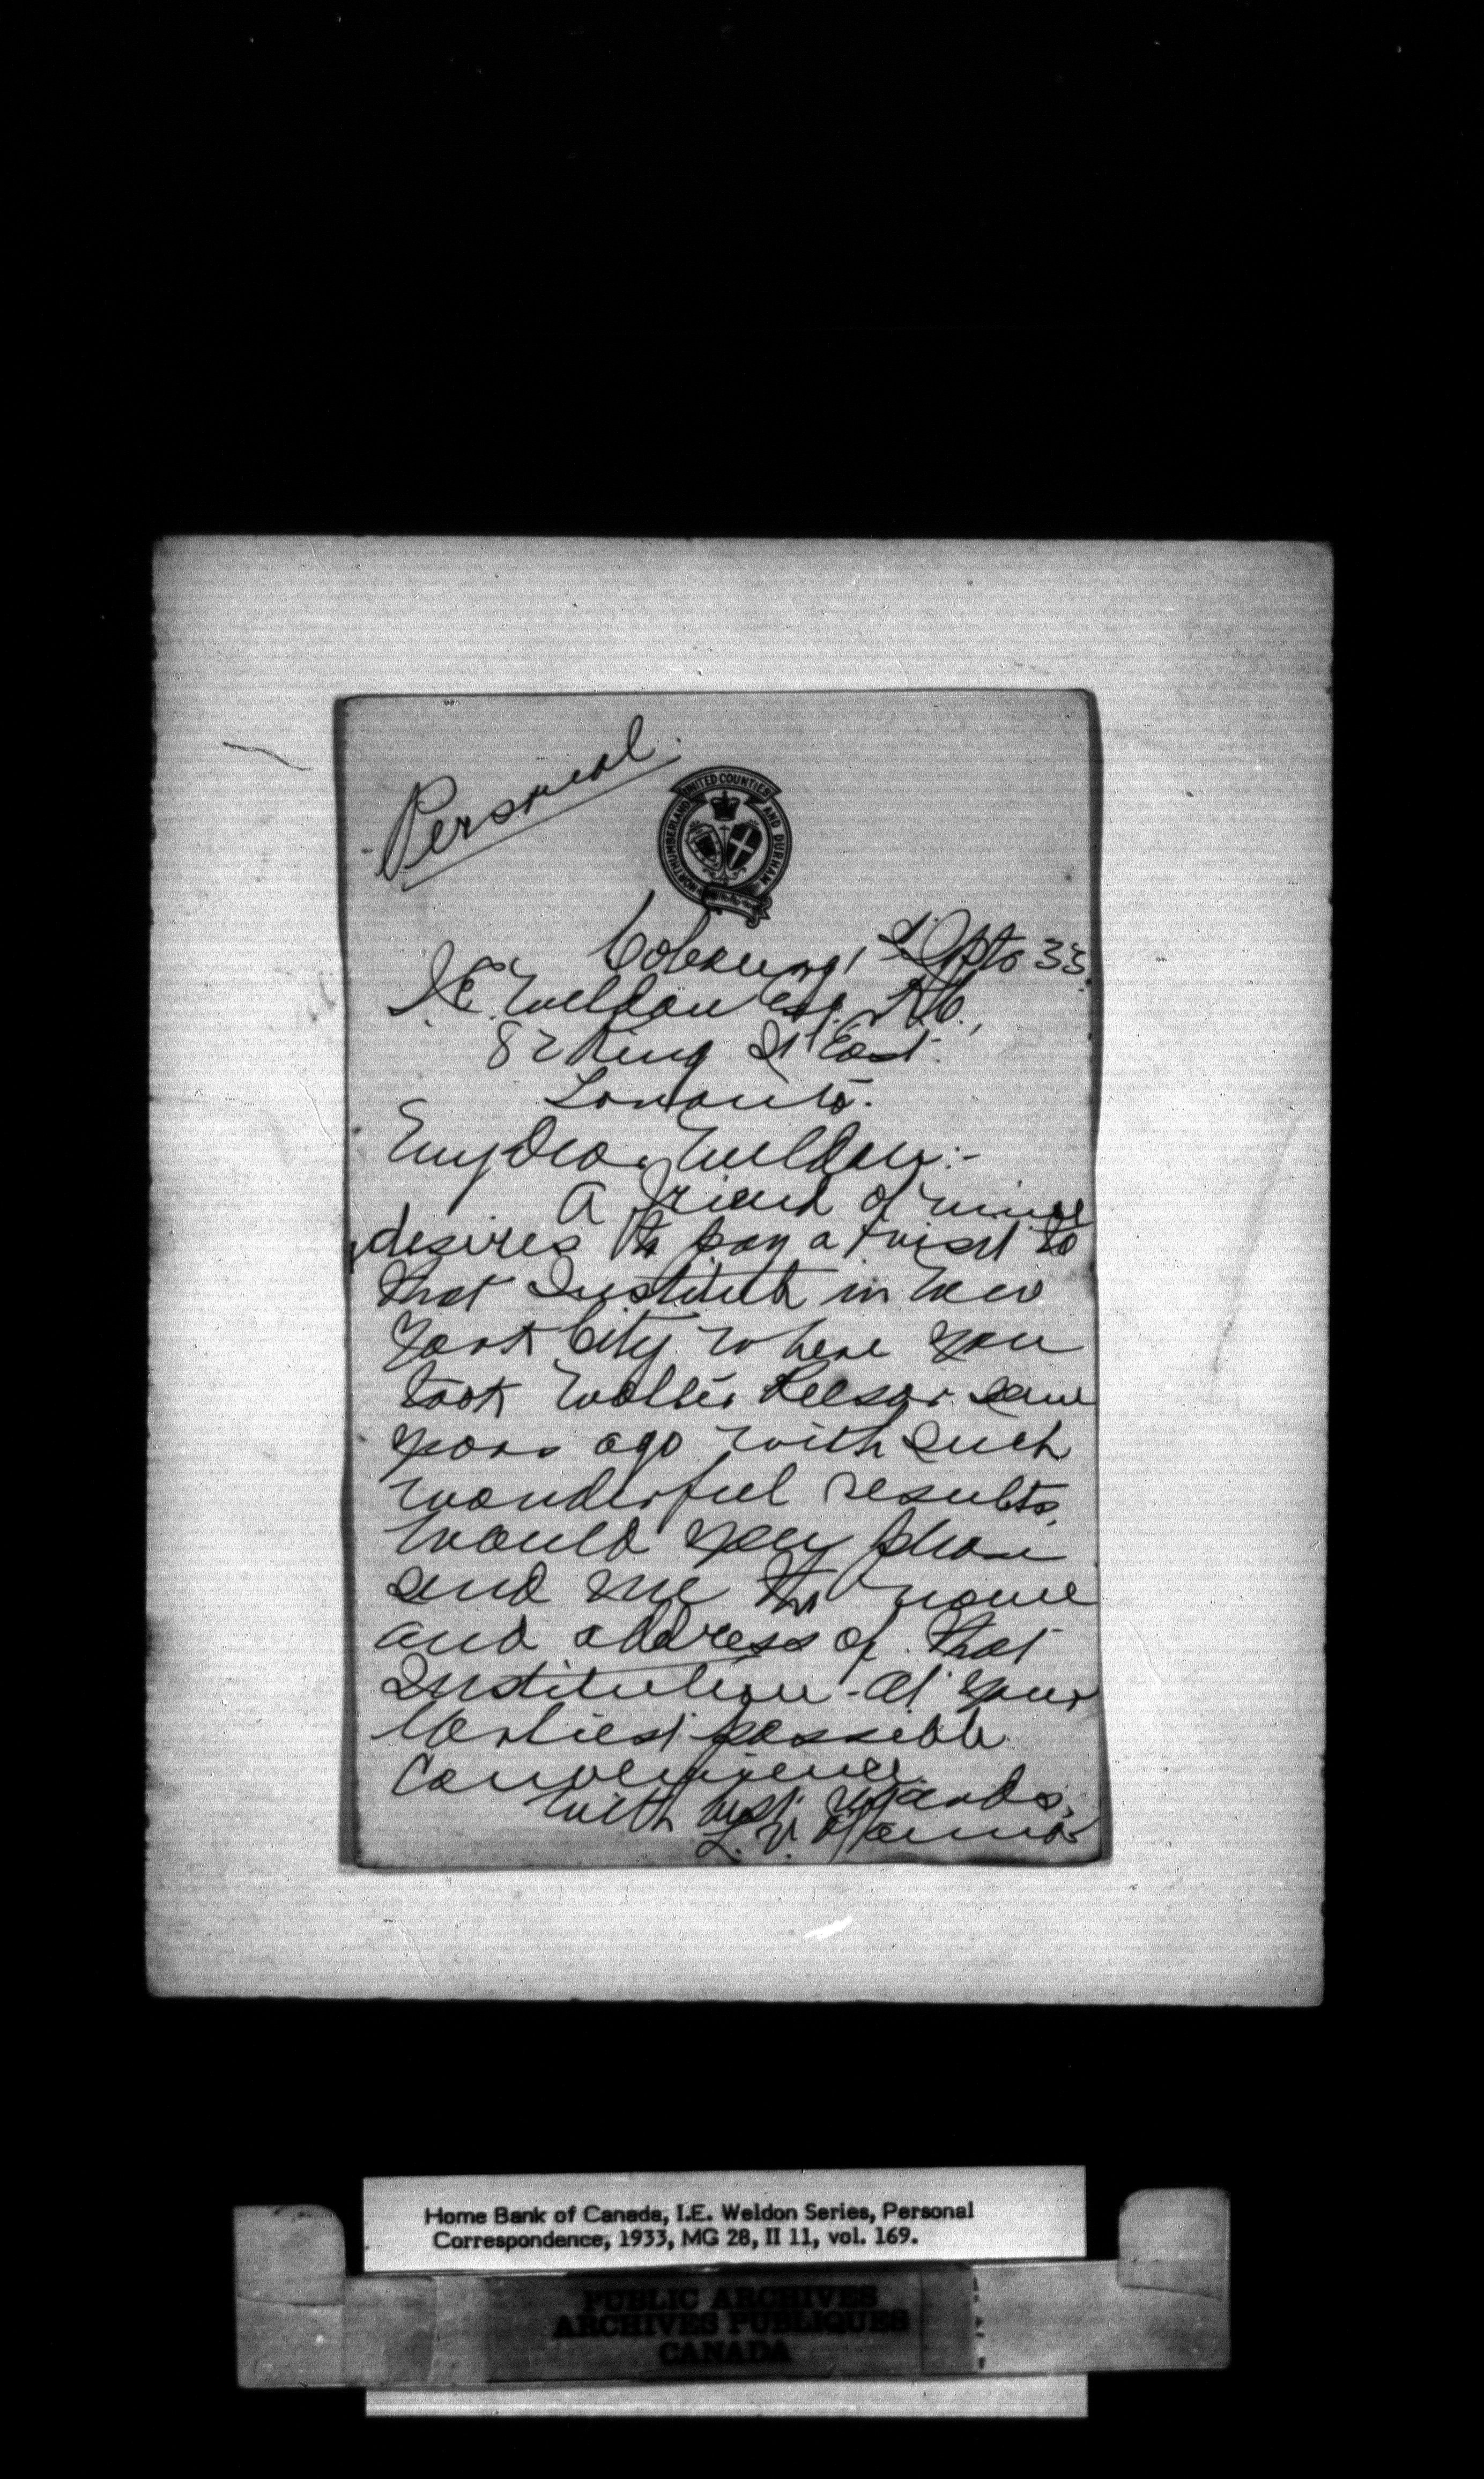 Personal.
UNITED COUNTIES
NORTHUMBERLAND AND DURHAM
Cobourg, Sept 33.
I.E. Weldon Esq. K.C.,
82 King St East.
Toronto.
My dear Weldon:-
A friend of mine
desires to pay a visit to
that Institute in New
York City where you
took Walter Reesor some
years ago with such
wonderful results.
Would you please
send me the name
and address of that
Institution - at your
earliest possible
convenience
With best regards,
Home Bank of Canada, I.E. Weldon Series, Personal
Correspondence, 1933, MG 28, II 11, vol. 169.
PUBLIC ARCHIVES
ARCHIVES PUBLIQUES
CANADA